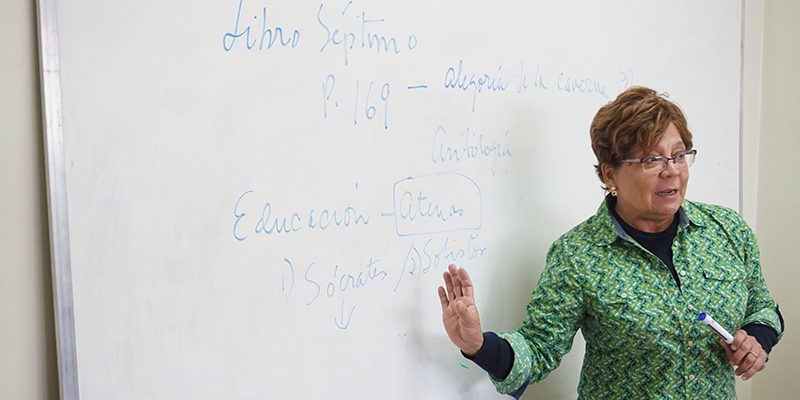 Libro Séptimo
P. 169 — alegoría de la caverna (3)
Antología
Educación — Atenas
1) Sócrates /2) Sofistas
↓